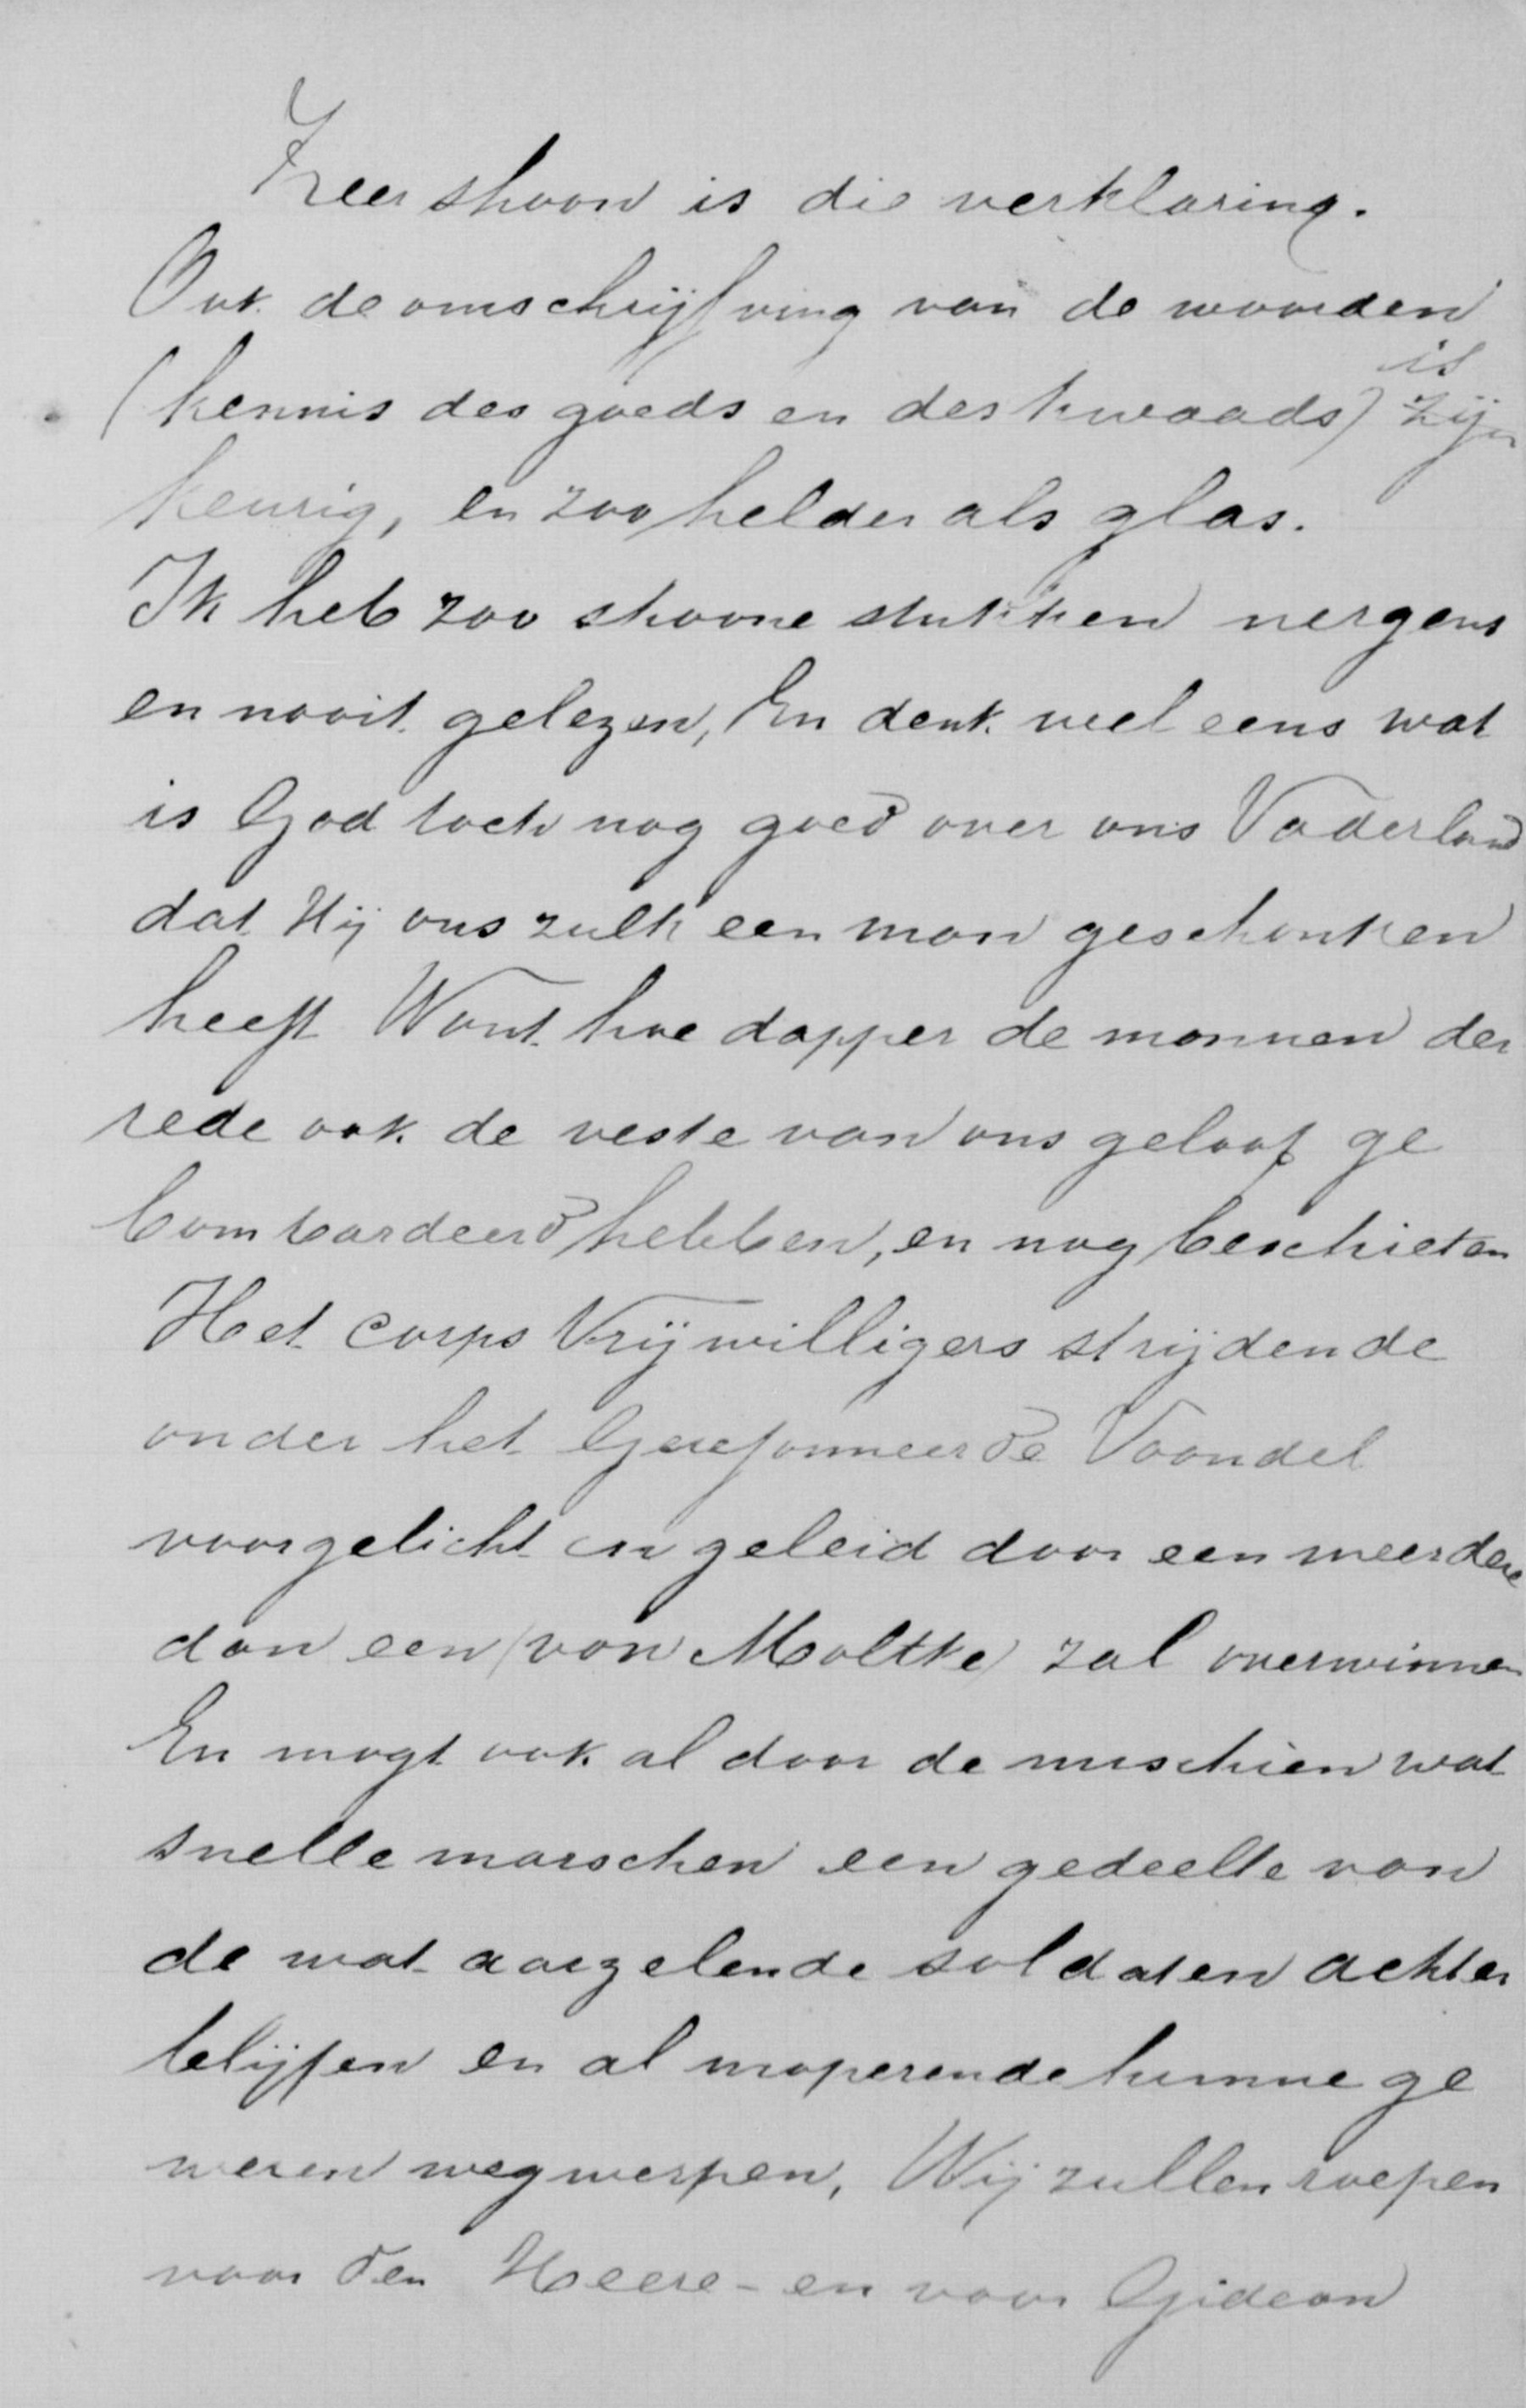 Zeer shoon is die verklaring.
Ook de omschrijfving van de woorden
is
(kennis des goeds en des kwaads) zijn
keurig, en zoo helder als glas.
Ik heb zoo shoone stukken nergens
en nooit gelezen, En denk veel eens wat
is God toch nog goed over ons Vaderland
dat Hij ons zulk een man geschonken
heeft Want hoe dapper de mannen der
rede ook de veste van ons geloof ge
bombardeerd hebben, en nog beschieten
Het corps Vrijwilligers strijdende
onder het Gereformeerde Vaandel
voorgelicht en geleid door een meerdere
dan een (von Moltke) zal overwinnen
En mogt ook al door de mischien wat
snelle marschen een gedeelte van
de wat aarzelende soldaten achter
blijfen en al moperende hunne ge
weren wegwerpen, Wij zullen roepen
voor den Heere - en voor Gideon